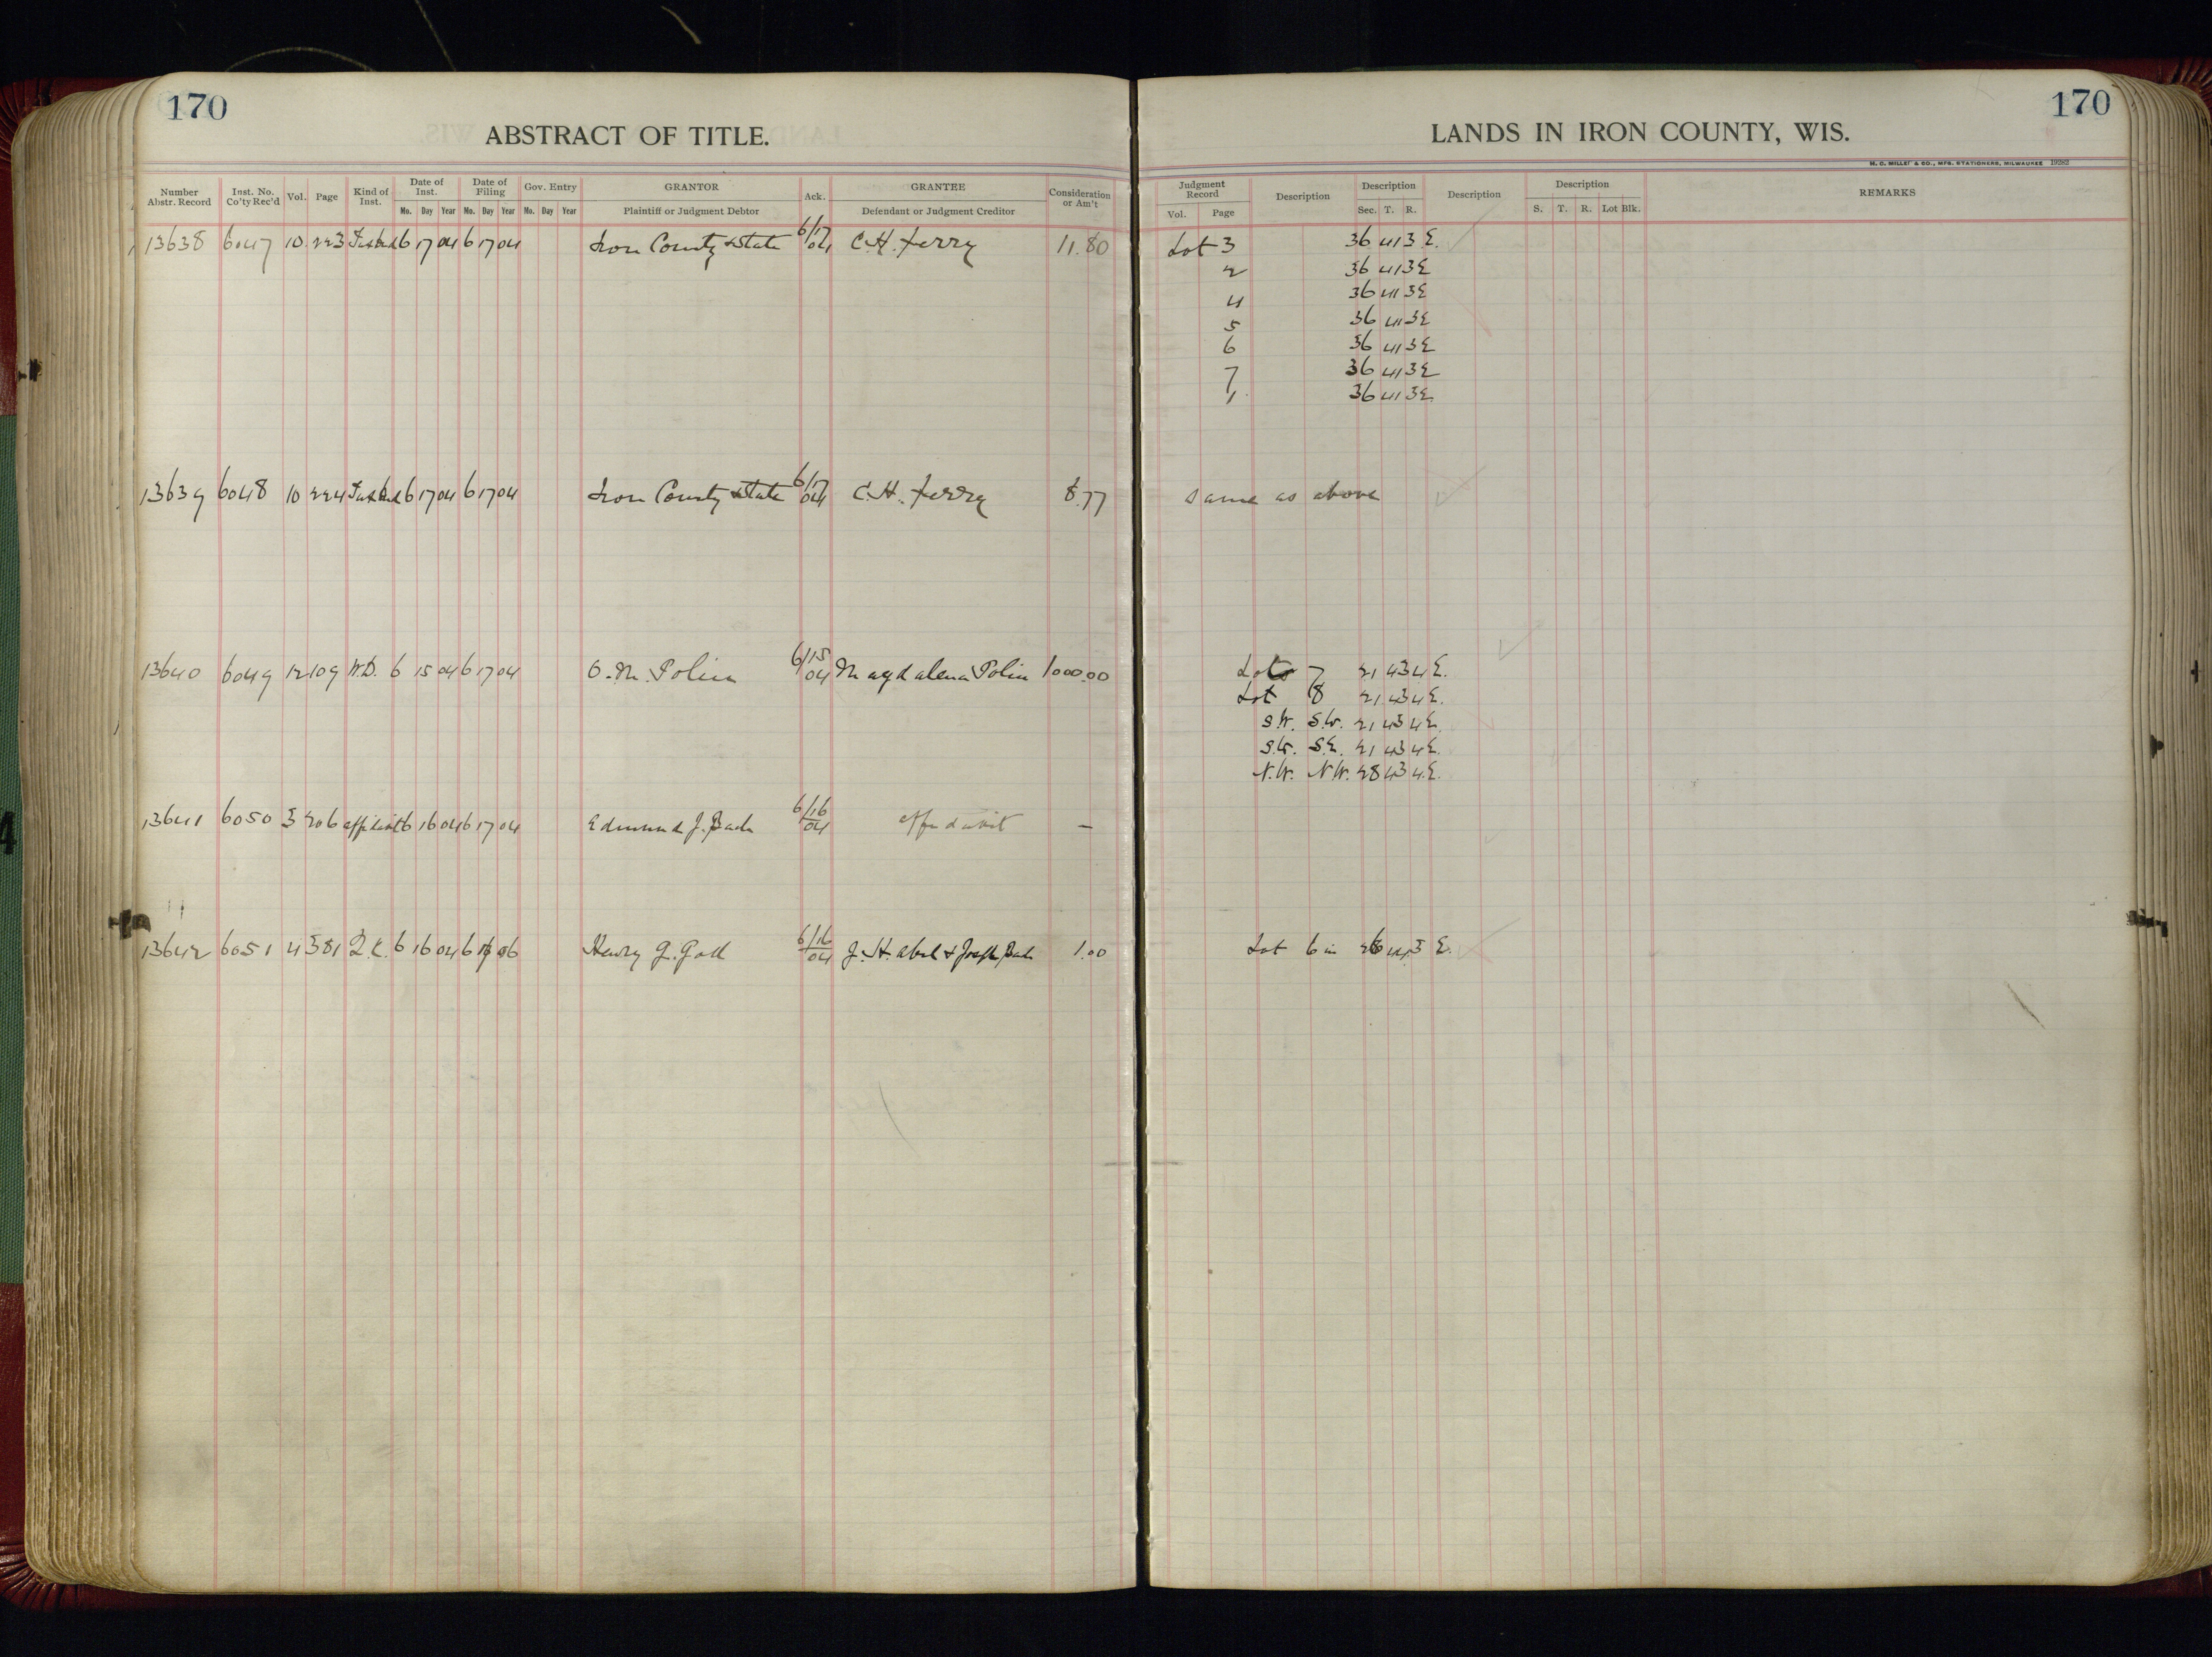 170
ABSTRACT OF TITLE.
Number Abstr. Record
Inst. No. Co'ty Rec'd
Vol.
Page
Kind of Inst.
Date of Inst.
Mo. Day Year
Date of Filing
Mo. Day Year
Gov. Entry
Mo. Day Year
GRANTOR
Plaintiff or Judgment Debtor
Ack.
GRANTEE
Defendant or Judgment Creditor
Consideration or Am't
13638 6047 10 223 6 17 04 6 17 04 Iron County & State 6/17 04 C.H. Ferry 11.80
13639 6048 10 224 6 17 04 6 17 04 Iron County & State 6/17 04 C.H. Ferry 8.77
13640 6049 12 109 W.D. 6 15 04 6 17 04 O.M. Polin 6/15 04 Magdalena Polin 1000.00
13641 6050 3 206 affidavit 6 16 04 6 17 04 Edmund J. 6/16 04 affidavit —
13642 6051 4 381 Q.C. 6 16 04 6 Henry G. 6/16 04 J.H. & Joseph 1.00
170
LANDS IN IRON COUNTY, WIS.
H. C. MILLER & CO., MFG. STATIONERS, MILWAUKEE
Judgment Record
Vol. Page
Description
Description
Sec. T. R.
Description
Description
S. T. R. Lot Blk.
REMARKS
Lot 3 36 41 3 E.
2 36 41 3 E
4 36 41 3 E
5 36 41 3 E
6 36 41 3 E
7 36 41 3 E
1 36 41 3 E.
Same as above
Lot 7 21 43 4 E.
Lot 8 21 43 4 E.
S.W. S.W. 21 43 4 E.
S.W. S.E. 21 43 4 E.
N.W. N.W. 28 43 4 E.
Lot 6 in 3 E.